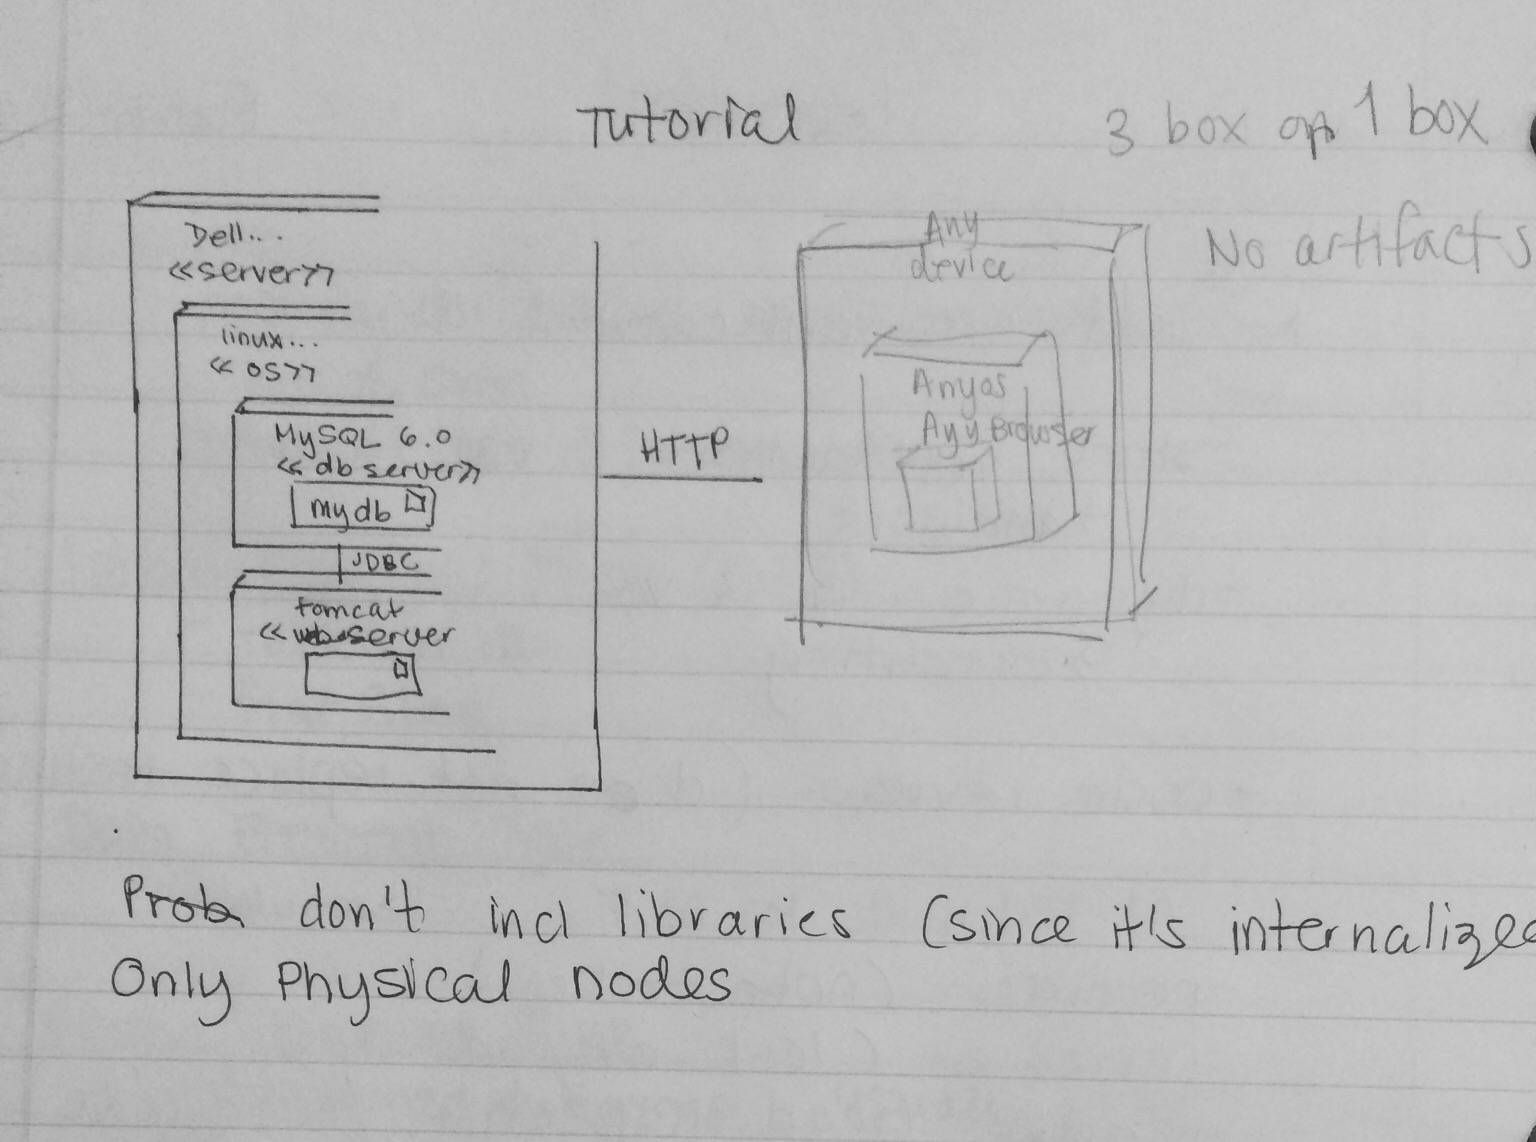 Tutorial
3 box or 1 box
No artifacts
Dell...
<<server>>
linux...
<< OS>>
MySQL 6.0
<< db server>>
mydb
JDBC
tomcat
<< web server
HTTP
Any
device
Any os
Any Browser
Prob don't incl libraries (since it's internalized
Only physical nodes